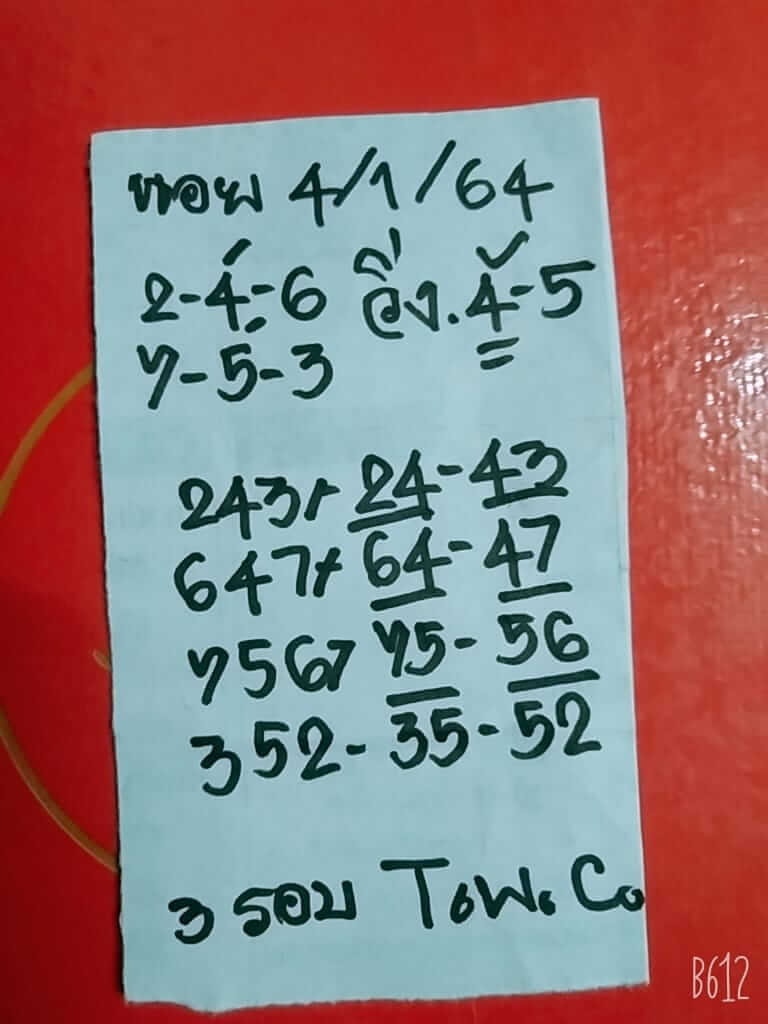 หอย 4/1/64
2-4-6 วิ่ง.4-5
7-5-3
243+ 24-43
647+ 64-47
7567 75-56
352-35-52
3 รอบ T.W. Co
B612